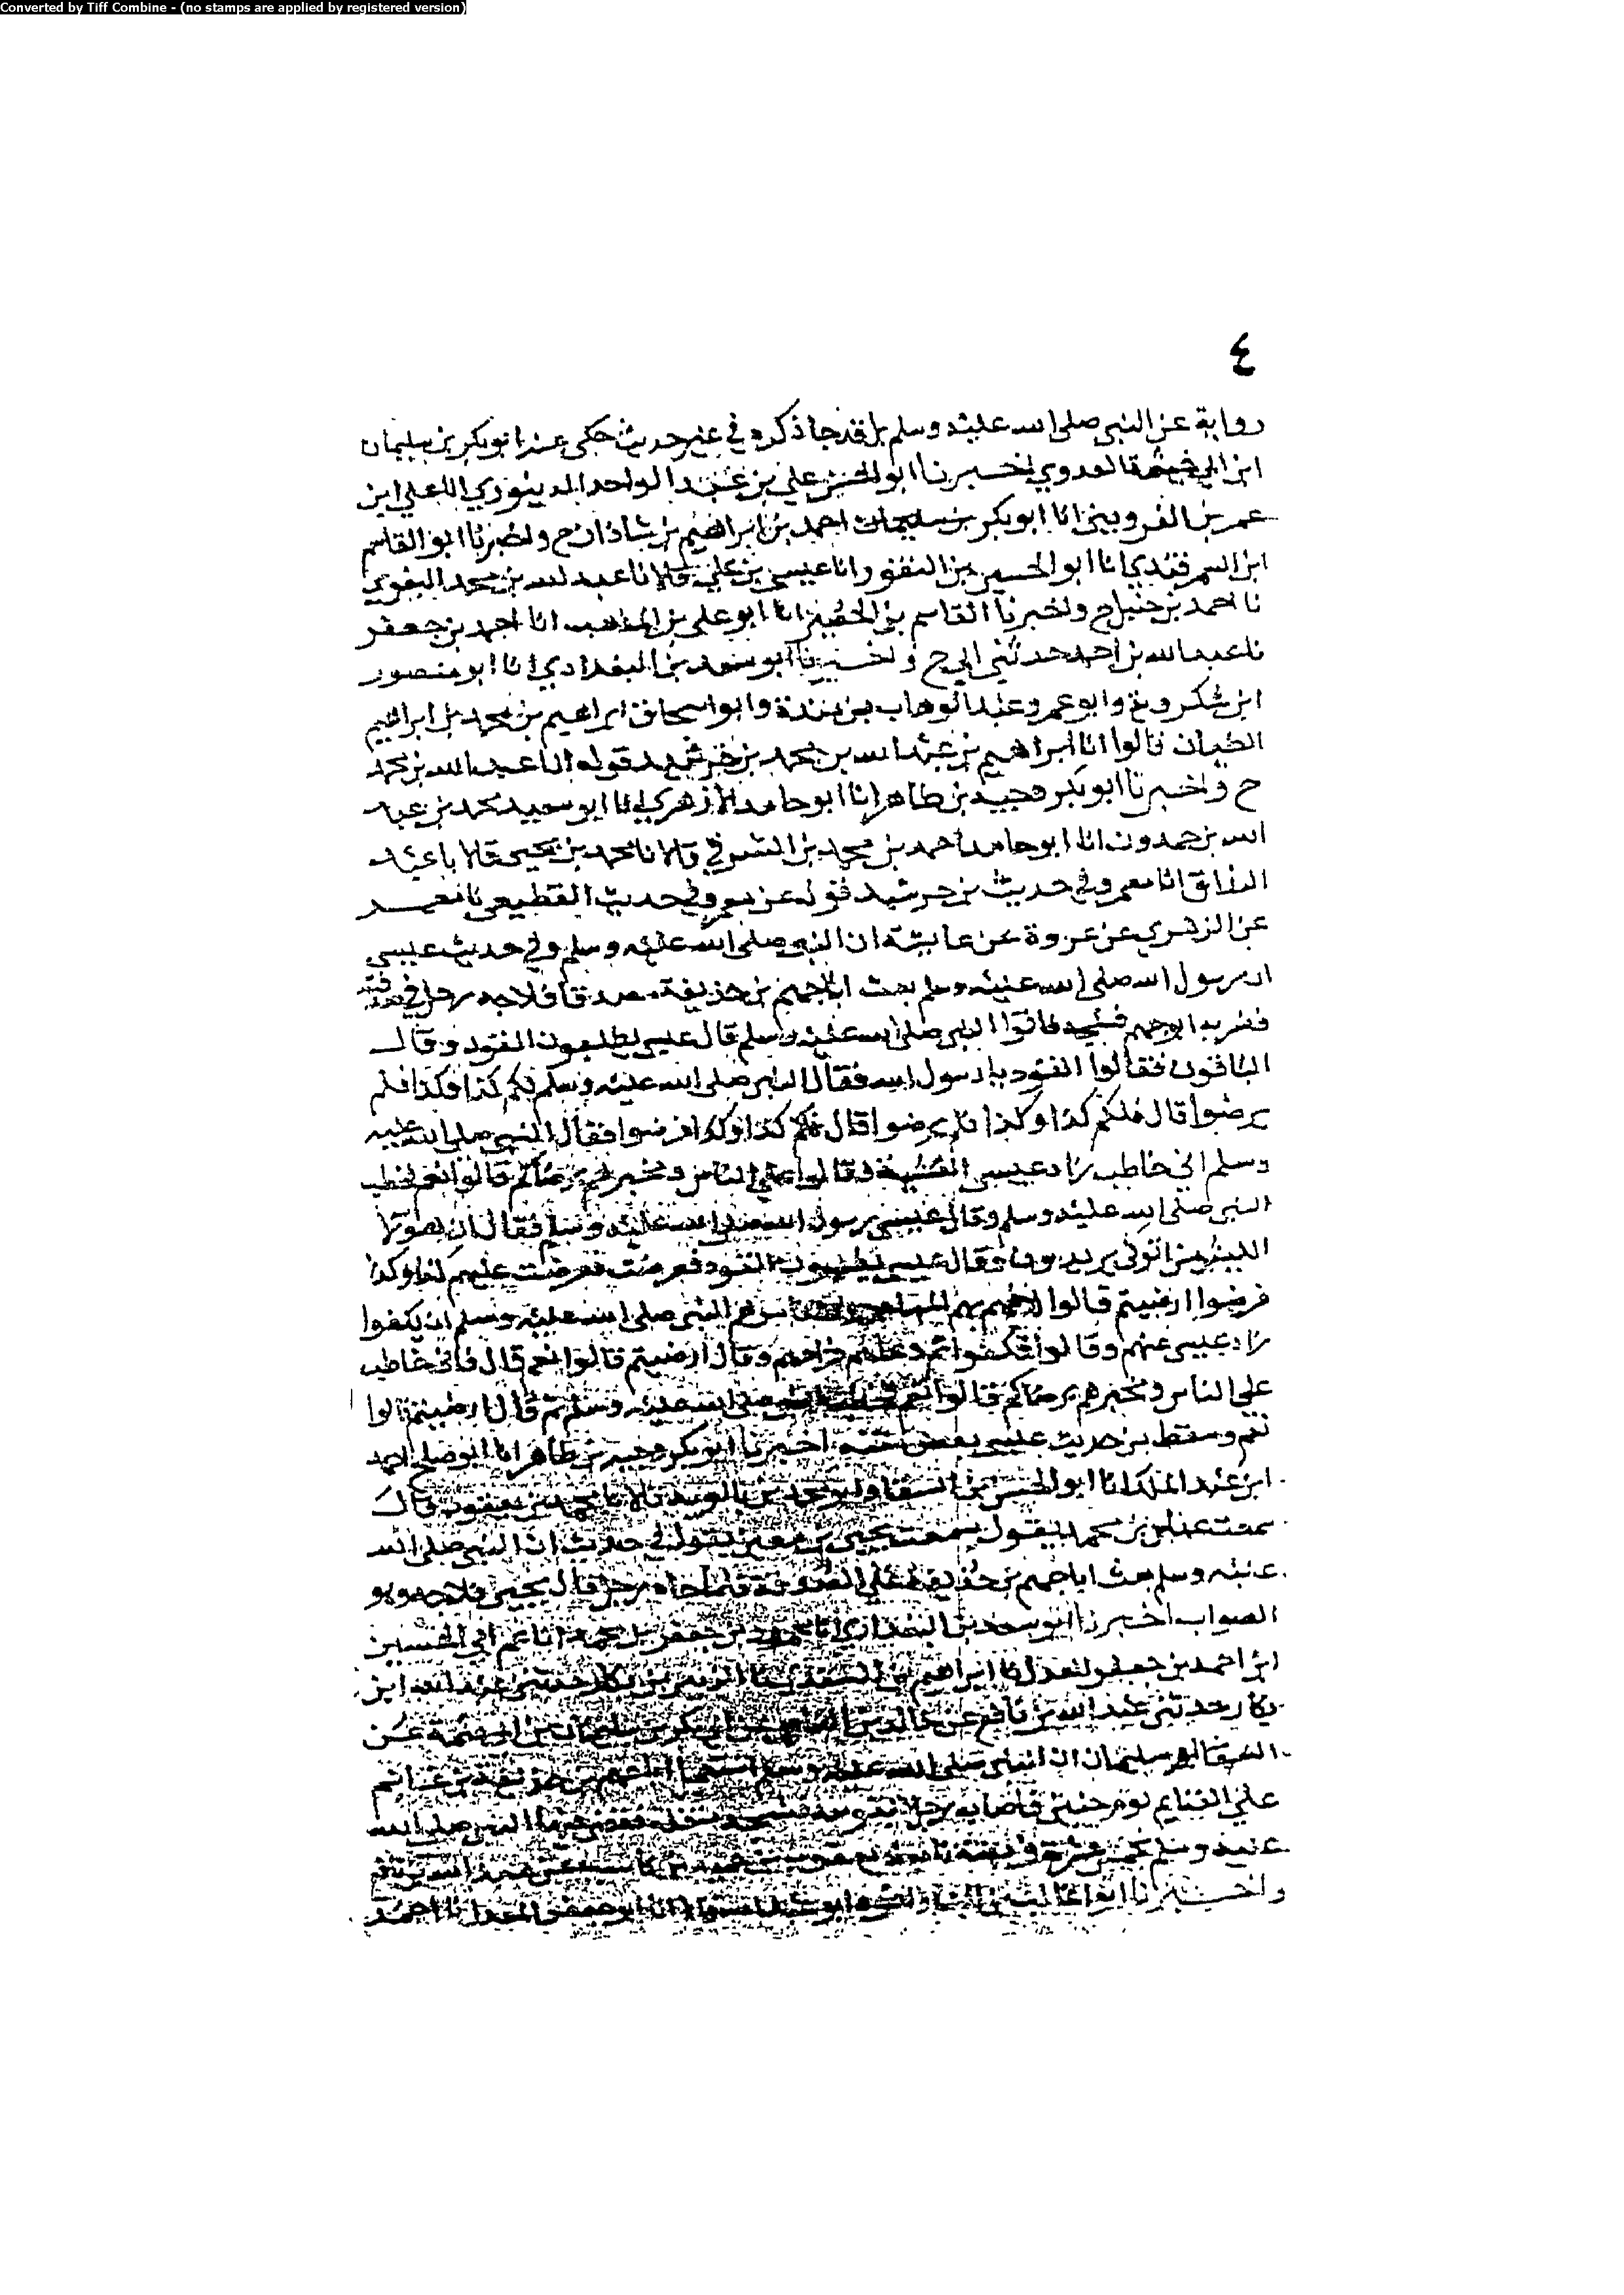 Converted by Tiff Combine - (no stamps are applied by registered version)
٤
رواية عن النبي صلى الله عليه وسلم بل قد جا ذكره في غير حديث حكى عنه ابو بكر بن سليمان
ابن ابي خيثمة العدوي اخبرنا ابو الحسن علي بن عبد الواحد الدينوري انا علي ابن
عمر بن القزويني انا ابو بكر احمد بن ابرهيم بن شاذان ح واخبرنا ابو القاسم
ابن السمرقندي انا ابو الحسين بن النقور انا عيسى بن علي قالا انا عبد الله بن محمد البغوي
نا احمد بن حنبل ح واخبرنا القاسم بن الحصين انا ابو علي بن المذهب انا احمد بن جعفر
نا عبد الله بن احمد حدثني ابي ح واخبرنا ابو سعد بن البغدادي انا ابو منصور
ابن شكرويه وابو عمرو عبد الوهاب بن مندة وابو اسحاق ابراهيم بن محمد بن ابراهيم
الطيان قالوا انا ابراهيم بن عبد الله بن محمد بن خرشيد قوله انا عبد الله بن محمد
ح واخبرنا ابو بكر وجيه بن طاهر انا ابو حامد الازهري انا ابو سعيد محمد بن عبد
الله بن حمدون انا ابو حامد احمد بن محمد بن الشرقي قالا نا محمد بن يحيى قالا نا عبد
الرزاق انا معمر وفي حديث بن خرشيد قوله عن معمر وفي حديث القطيعي نا معمر
عن الزهري عن عروة عن عايشة ان النبي صلى الله عليه وسلم وفي حديث عيسى
ان رسول الله صلى الله عليه وسلم بعث ابا جهم بن حذيفة مصدقا فلاجه رجل في صدقته
فضربه ابو جهم فشجه فاتوا النبي صلى الله عليه وسلم قال عيسى يطلبون القود وقال
الباقون فقالوا القود يا رسول الله فقال النبي صلى الله عليه وسلم لكم كذا وكذا فلم
يرضوا قال فلكم كذا وكذا فلم يرضوا قال فلكم كذا وكذا فرضوا فقال النبي صلى الله عليه
وسلم اني خاطب زاد عيسى العشية وقالوا على الناس ومخبرهم برضاكم قالوا نعم فخطب
النبي صلى الله عليه وسلم وقال عيسى رسول الله صلى الله عليه وسلم فقال ان هولا
الليثيين اتوني يريدون وقال عيسى يطلبون القود فعرضت عليهم كذا وكذا
فرضوا ارضيتم قالوا لا فهم بهم المهاجرون فامرهم النبي صلى الله عليه وسلم ان يكفوا
زاد عيسى عنهم وقالوا فكفوا ثم دعاهم فزادهم وقال ارضيتم قالوا نعم قال فاني خاطب
على الناس ومخبرهم برضاكم قالوا نعم فخطب النبي صلى الله عليه وسلم ثم قال ارضيتم قالوا
نعم وسقط من حديث عيسى بعض متنه اخبرنا ابو بكر وجيه بن طاهر انا ابو صلح احمد
ابن عبد الملك انا ابو الحسن بن السقا وابو محمد بن بالويه قالا نا محمد بن يعقوب قال
سمعت عباس بن محمد يقول سمعت يحيى بن معين يقول في حديث ان النبي صلى الله
عليه وسلم بعث ابا جهم بن حذيفة على الصدقة فلما جاه رجل قال يحيى فلاجه وهو
الصواب اخبرنا ابو سعد بن البغدادي انا محمود بن جعفر بن محمد انا عم ابي الحسين
ابن احمد بن جعفر المعدل نا ابراهيم بن السندي نا الزبير بن بكار حدثني عبد الله ابن
بكار حدثني عبد الله بن نافع عن خالد بن عن ابي بكر بن سليمان بن ابي حثمة عن
سليمان ان النبي صلى الله عليه وسلم استعمل ابا جهم بن حذيفة بن غانم
على الغنايم يوم حنين فاصاب رجلا بقوسه فشجه منقلة فقضى فيها النبي صلى الله
عليه وسلم بخمس عشرة فريضة
واخبرنا ابو غالب بن البنا وابو عبد الله قالا انا ابو جعفر المعدل انا احمد